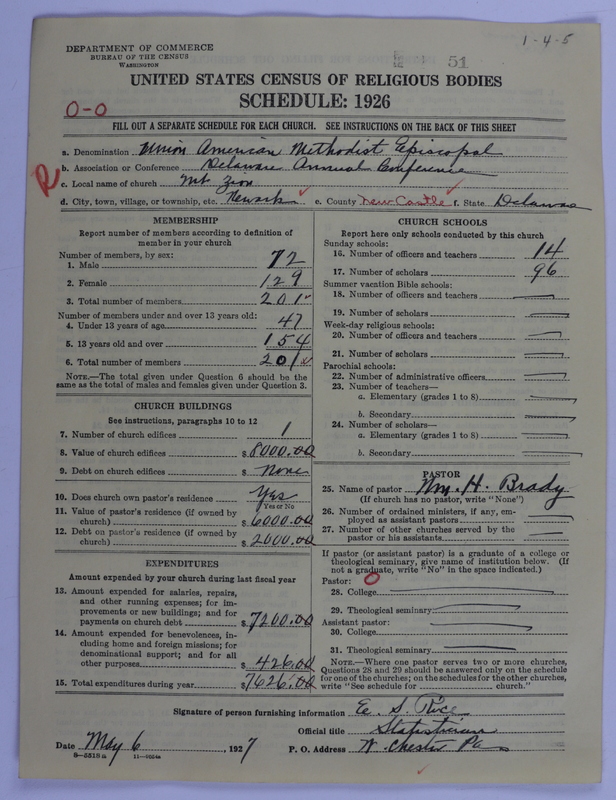 1-4-5
DEPARTMENT OF COMMERCE
BUREAU OF THE CENSUS
WASHINGTON
51
UNITED STATES CENSUS OF RELIGIOUS BODIES
SCHEDULE: 1926
0-0
FILL OUT A SEPARATE SCHEDULE FOR EACH CHURCH. SEE INSTRUCTIONS ON THE BACK OF THIS SHEET
a. Denomination Union American Methodist Episcopal
b. Association or Conference Delaware Annual Conference
R
c. Local name of church Mt. Zion
d. City, town, village, or township, etc. Newark e. County New Castle f. State Delaware
MEMBERSHIP
Report number of members according to definition of
member in your church
Number of members, by sex:
1. Male 72
2. Female 129
3. Total number of members 201
Number of members under and over 13 years old:
4. Under 13 years of age 47
5. 13 years old and over 154
6. Total number of members 201
NOTE.—The total given under Question 6 should be the
same as the total of males and females given under Question 3.
CHURCH BUILDINGS
See instructions, paragraphs 10 to 12
7. Number of church edifices 1
8. Value of church edifices $ 8000.00
9. Debt on church edifices $ None
10. Does church own pastor's residence Yes
Yes or No
11. Value of pastor's residence (if owned by
church) $ 6000.00
12. Debt on pastor's residence (if owned by
church) $ 2000.00
EXPENDITURES
Amount expended by your church during last fiscal year
13. Amount expended for salaries, repairs,
and other running expenses; for im-
provements or new buildings; and for
payments on church debt $ 7200.00
14. Amount expended for benevolences, in-
cluding home and foreign missions; for
denominational support; and for all
other purposes $ 426.00
15. Total expenditures during year $ 7626.00
CHURCH SCHOOLS
Report here only schools conducted by this church
Sunday schools:
16. Number of officers and teachers 14
17. Number of scholars 96
Summer vacation Bible schools:
18. Number of officers and teachers
19. Number of scholars
Week-day religious schools:
20. Number of officers and teachers
21. Number of scholars
Parochial schools:
22. Number of administrative officers
23. Number of teachers—
a. Elementary (grades 1 to 8)
b. Secondary
24. Number of scholars—
a. Elementary (grades 1 to 8)
b. Secondary
PASTOR
25. Name of pastor Wm. H. Brady
(If church has no pastor, write "None")
26. Number of ordained ministers, if any, em-
ployed as assistant pastors
27. Number of other churches served by the
pastor or his assistants
If pastor (or assistant pastor) is a graduate of a college or
theological seminary, give name of institution below. (If
not a graduate, write "No" in the space indicated.)
Pastor: 0
28. College
29. Theological seminary
Assistant pastor:
30. College
31. Theological seminary
NOTE.—Where one pastor serves two or more churches,
Questions 28 and 29 should be answered only on the schedule
for one of the churches; on the schedules for the other churches,
write "See schedule for church."
Signature of person furnishing information E. S. Rice
Official title Statistician
Date May 6, 1927 P. O. Address W. Chester Pa
8-5518a 11-9034a